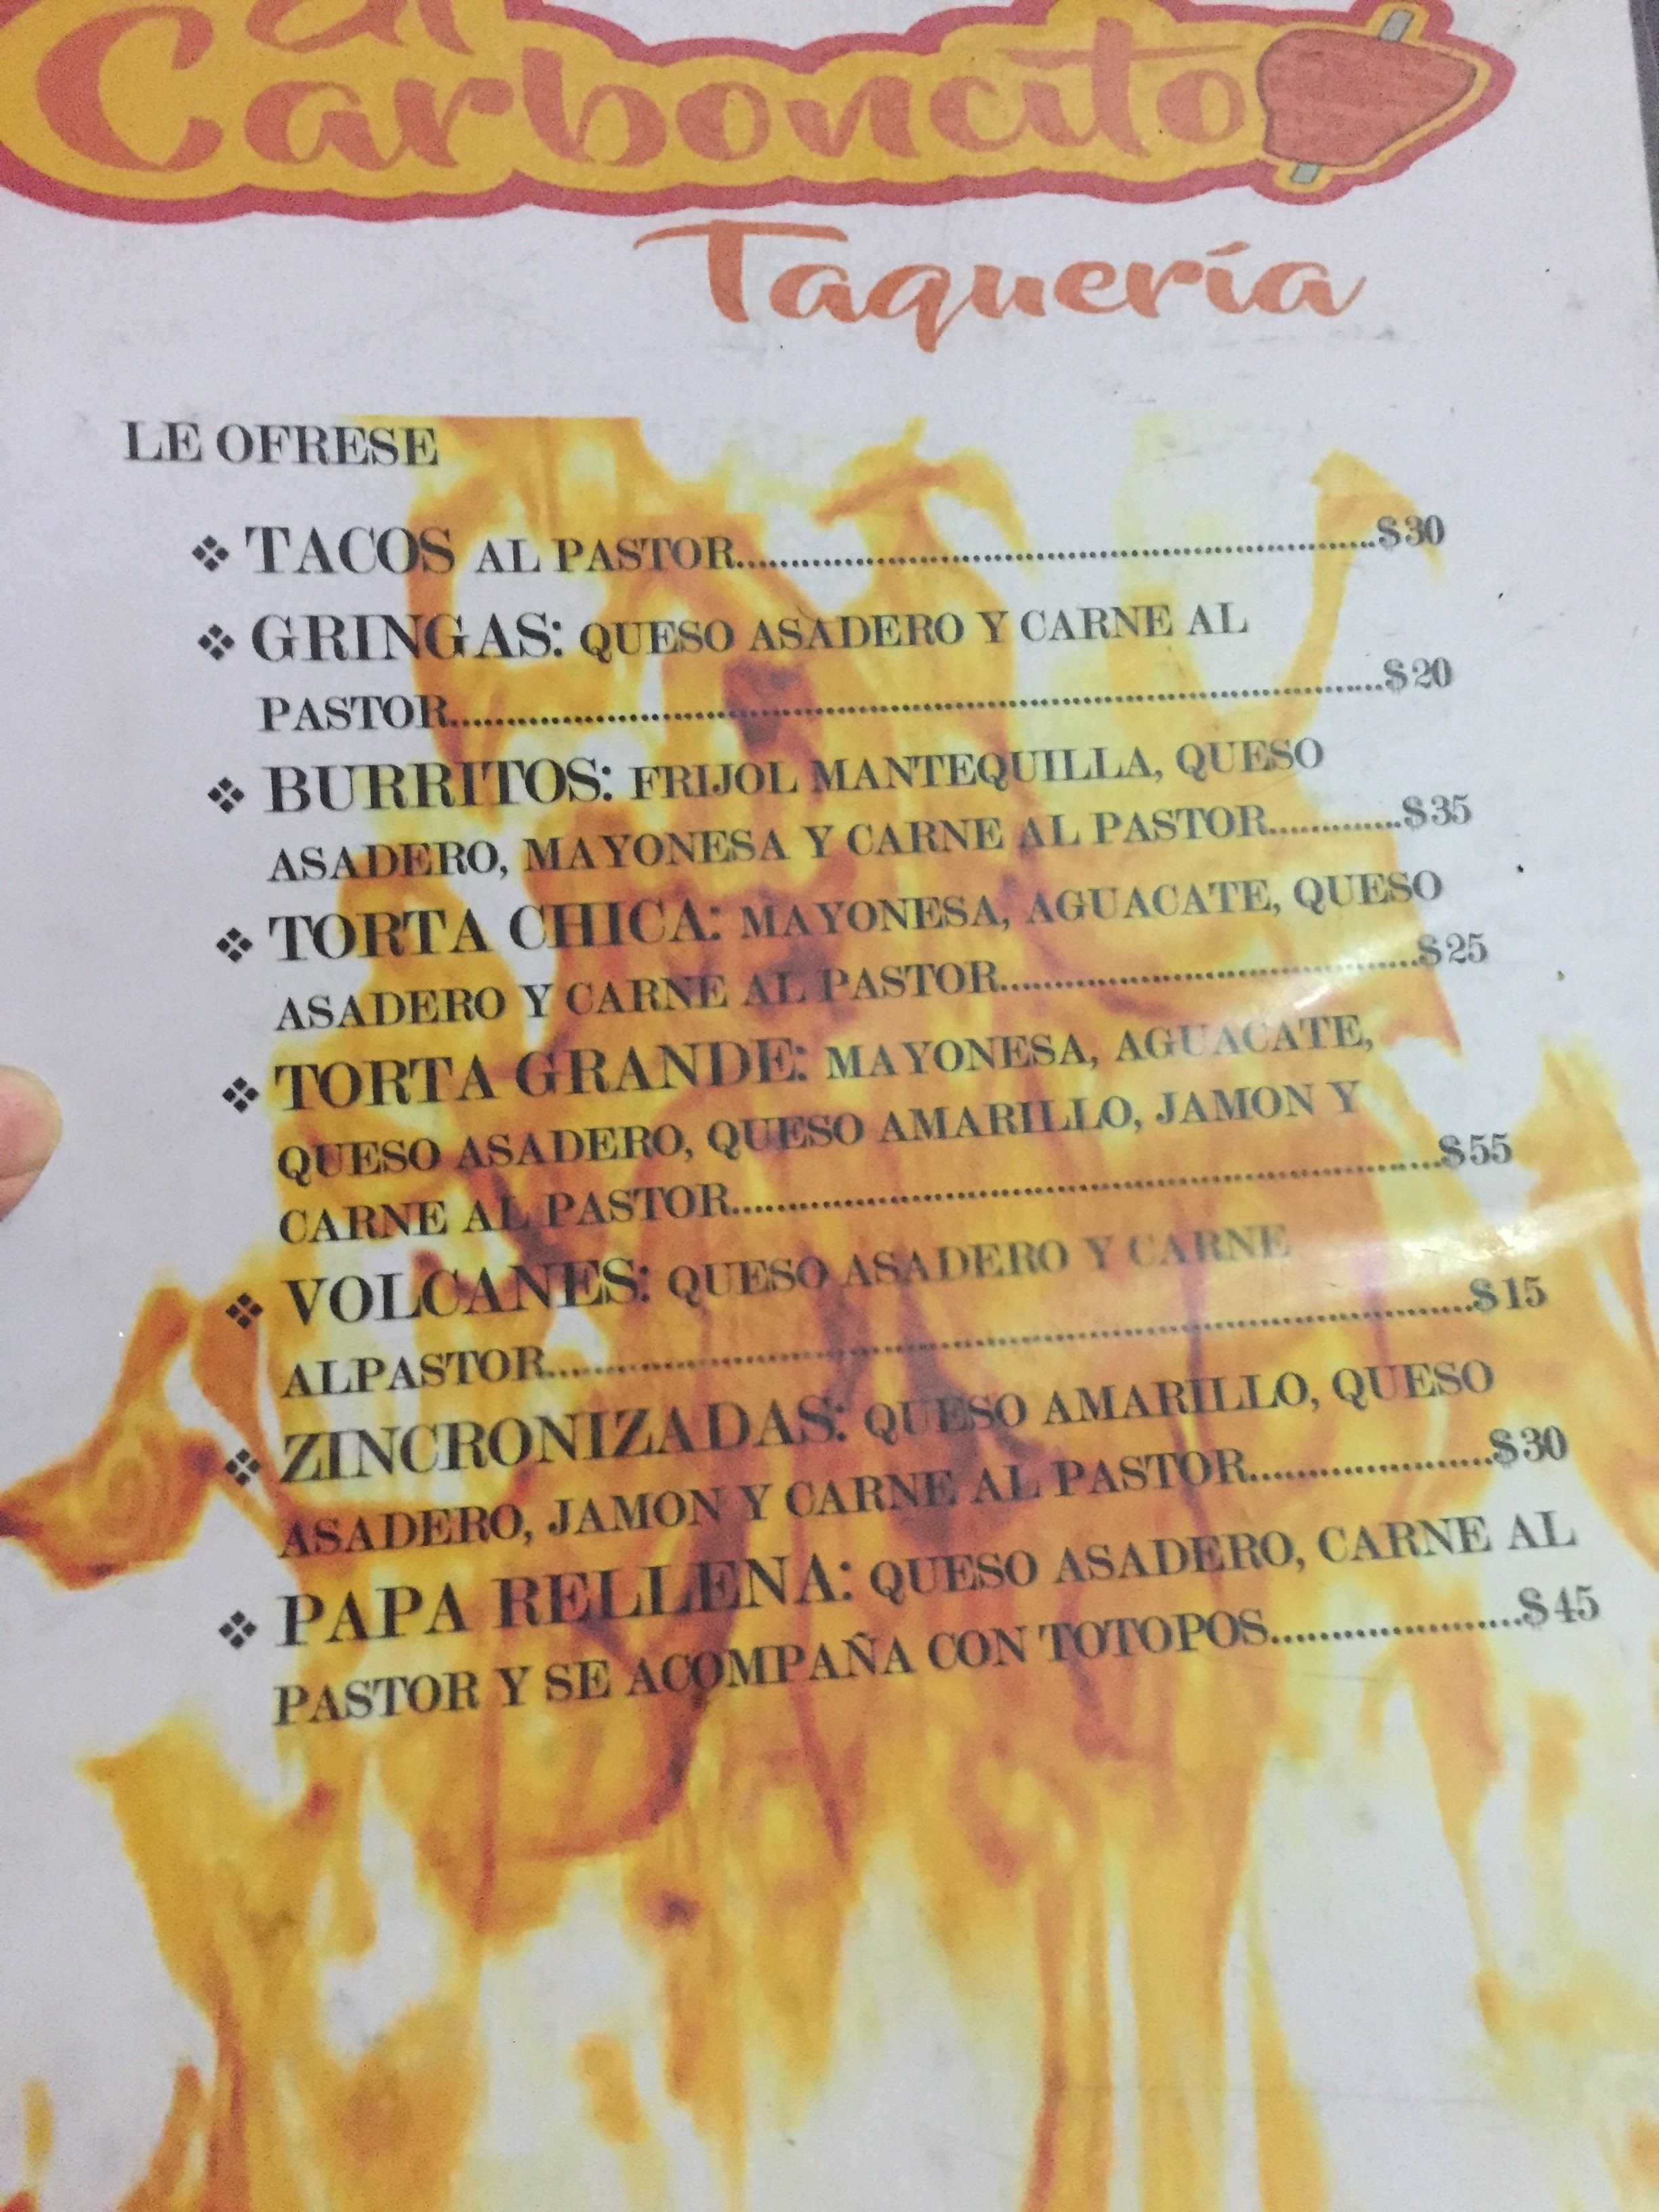 al
Carboncito
Taquería
LE OFRESE
❖ TACOS AL PASTOR..........................................................$30
❖ GRINGAS: QUESO ASADERO Y CARNE AL
PASTOR....................................................................................$20
❖ BURRITOS: FRIJOL MANTEQUILLA, QUESO
ASADERO, MAYONESA Y CARNE AL PASTOR.............$35
❖ TORTA CHICA: MAYONESA, AGUACATE, QUESO
ASADERO Y CARNE AL PASTOR.......................................$25
❖ TORTA GRANDE: MAYONESA, AGUACATE,
QUESO ASADERO, QUESO AMARILLO, JAMON Y
CARNE AL PASTOR..................................................................$55
❖ VOLCANES: QUESO ASADERO Y CARNE
ALPASTOR.....................................................................................$15
❖ ZINCRONIZADAS: QUESO AMARILLO, QUESO
ASADERO, JAMON Y CARNE AL PASTOR......................$30
❖ PAPA RELLENA: QUESO ASADERO, CARNE AL
PASTOR Y SE ACOMPAÑA CON TOTOPOS......................$45